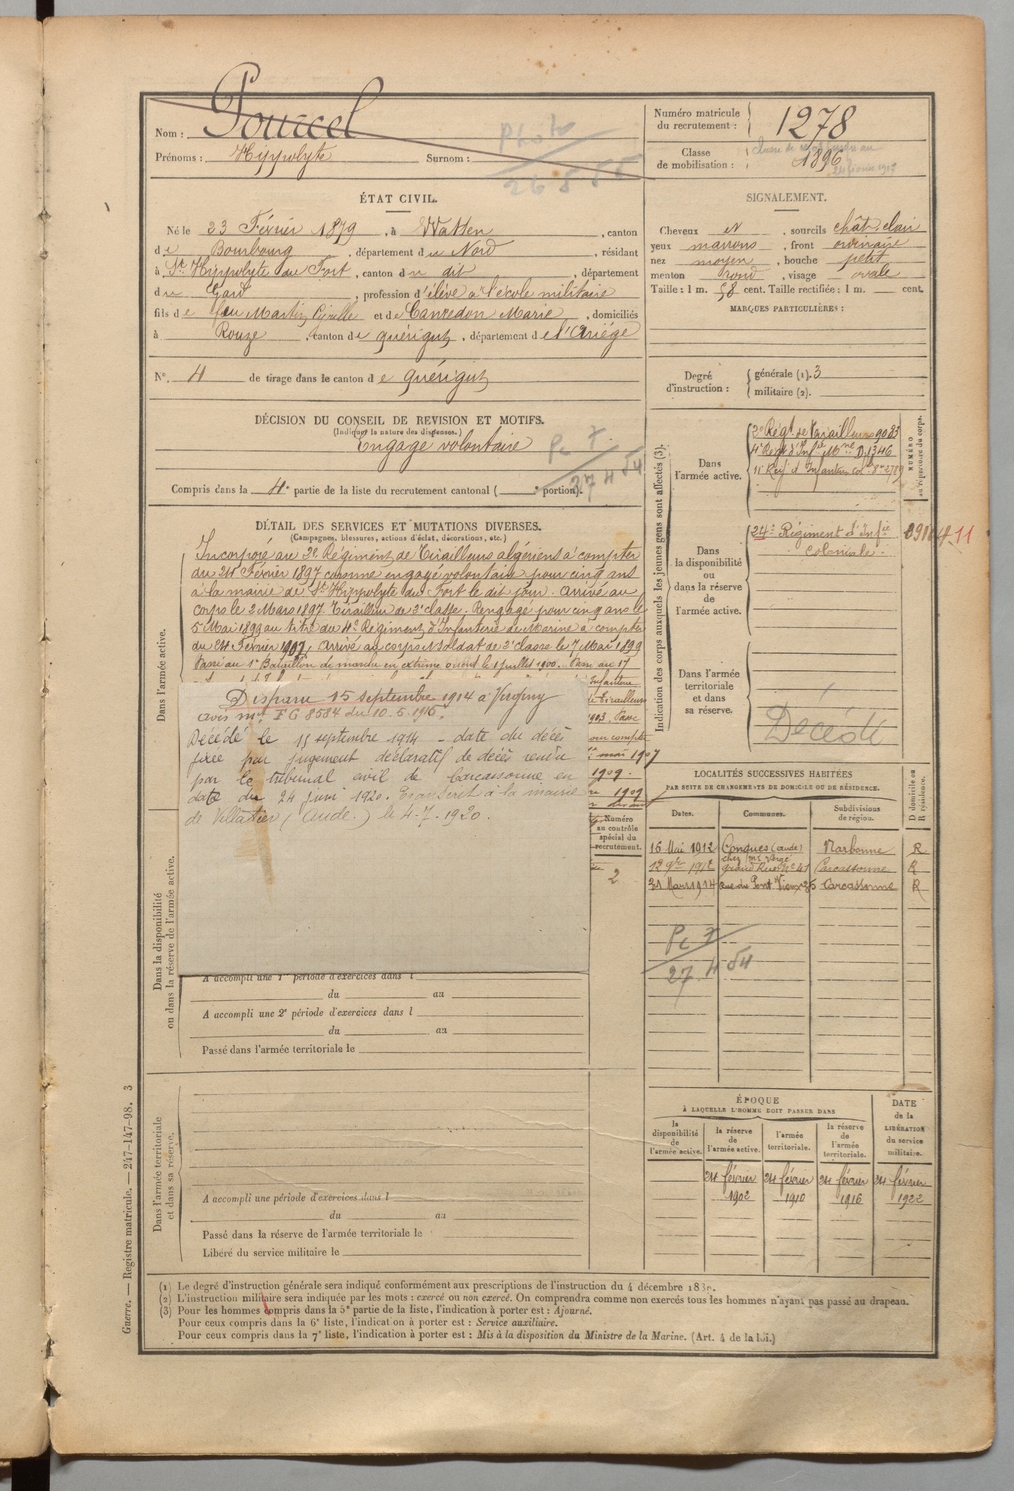 Nom : Pourcel
Prénoms : Hippolyte Surnom :
Photo
26 5 55
Numéro matricule du recrutement : 1278
Classe de mobilisation : 1896
ÉTAT CIVIL.
Né le 23 Février 1879, à Watten, canton
de Bourbourg, département du Nord, résidant
à St Hippolyte du Fort, canton du dit, département
du Gard, profession d'élève à l'école militaire
fils de feu Martin Cirille et de Canredon Marie, domiciliés
à Rouze, canton de quérigut, département de l'Ariége
N° 4 de tirage dans le canton de quérigut
SIGNALEMENT.
Cheveux et, sourcils chât. clair
yeux marrons, front ordinaire
nez moyen, bouche petit
menton rond, visage ovale
Taille : 1 m. 58 cent. Taille rectifiée : 1 m. cent.
MARQUES PARTICULIÈRES :
Degré d'instruction : générale (1). 3
militaire (2).
DÉCISION DU CONSEIL DE REVISION ET MOTIFS.
(Indiquer la nature des dispenses.)
Engagé volontaire
27 4 54
Compris dans la 4e partie de la liste du recrutement cantonal ( e portion).
DÉTAIL DES SERVICES ET MUTATIONS DIVERSES.
(Campagnes, blessures, actions d'éclat, décorations, etc.)
Dans l'armée active.
Incorporé au 2e Régiment de Tirailleurs algériens à compter
du 24 Février 1897 comme engagé volontaire pour cinq ans
à la mairie de St Hippolyte du Fort le dit jour. Arrivé au
corps le 2 Mars 1897. Tirailleur de 2e classe. Rengagé pour cinq ans le
5 Mai 1899 au titre du 4e Régiment d'Infanterie de Marine à compter
du 24 Février 1902, arrivé au corps et soldat de 2e classe le 7 Mai 1899
Passé au 1er Bataillon de marche en extrême orient le 1 juillet 1900. Passé au 17
Disparu 15 septembre 1914 à Virginy
avis mel FG 8584 du 10-5-1916.
Décédé le 15 septembre 1914 - date du décès
fixée par jugement déclaratif de décès rendu
par le tribunal civil de Carcassonne en
date du 24 juin 1920. Transcrit à la mairie
de Villalier (Aude) le 4-7-1920.
Infanterie
Tirailleurs
1903. Passé
pour compter
mai 1907
1909.
1909
Numéro au contrôle spécial du recrutement.
2
Dans la disponibilité ou dans la réserve de l'armée active.
A accompli une 1re période d'exercices dans l
du au
A accompli une 2e période d'exercices dans l
du au
Passé dans l'armée territoriale le
Dans l'armée territoriale et dans sa réserve.
A accompli une période d'exercices dans l
du au
Passé dans la réserve de l'armée territoriale le
Libéré du service militaire le
Indication des corps auxquels les jeunes gens sont affectés (3).
NUMÉRO au répertoire du corps.
Dans l'armée active.
2e Régt de Tirailleurs 9083
4e Régt d'Infie Mne D, 1346
11e Régt d'Infanterie cole
Dans la disponibilité ou dans la réserve de l'armée active.
24e Régiment d'Infie
coloniale.
11
Dans l'armée territoriale et dans sa réserve.
Décédé
LOCALITÉS SUCCESSIVES HABITÉES
PAR SUITE DE CHANGEMENTS DE DOMICILE OU DE RÉSIDENCE.
Dates. Communes. Subdivisions de région. D domicile ou R résidence.
16 Mai 1912 Conques (aude) Narbonne R
12 9bre 1912 grand Rue No 41 Carcassonne R
31 Mars 1914 rue du Pont Vieux 25 Carcassonne R
27 4 54
ÉPOQUE
À LAQUELLE L'HOMME DOIT PASSER DANS
la disponibilité de l'armée active. la réserve de l'armée active. l'armée territoriale. la réserve de l'armée territoriale.
DATE de la LIBÉRATION du service militaire.
24 février 1902 24 février 1910 24 février 1916 24 février 1922
(1) Le degré d'instruction générale sera indiqué conformément aux prescriptions de l'instruction du 4 décembre
(2) L'instruction militaire sera indiquée par les mots : exercé ou non exercé. On comprendra comme non exercés tous les hommes n'ayant pas passé au drapeau.
(3) Pour les hommes compris dans la 5e partie de la liste, l'indication à porter est : Ajourné.
Pour ceux compris dans la 6e liste, l'indication à porter est : Service auxiliaire.
Pour ceux compris dans la 7e liste, l'indication à porter est : Mis à la disposition du Ministre de la Marine. (Art. 4 de la loi.)
Guerre. — Registre matricule. — 247-147-98. 3